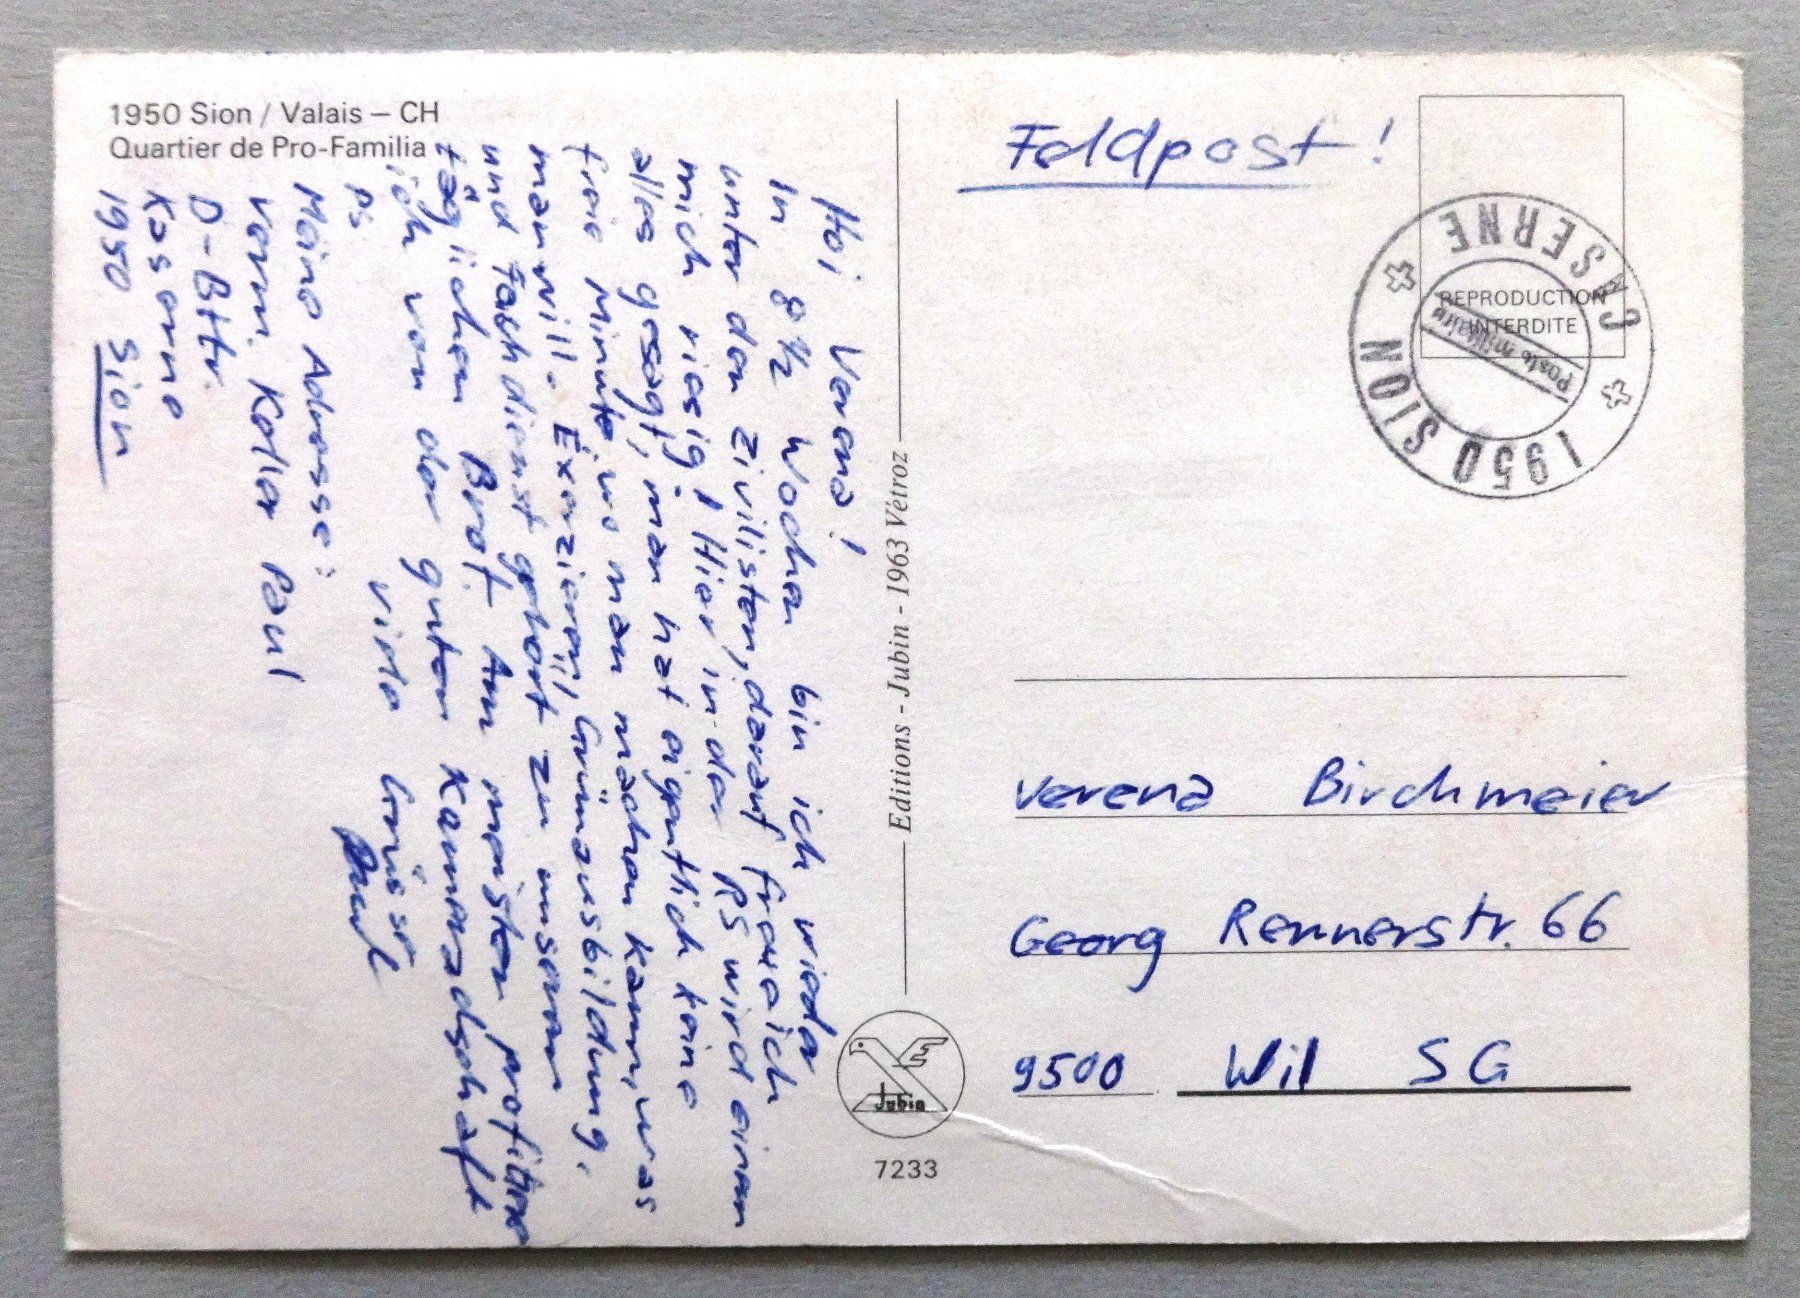 1950 Sion / Valais – CH
Quartier de Pro-Familia
Hoi Verena!
In 8 1/2 Wochen bin ich wieder
unter den Zivilisten, darauf freue ich
mich riesig! Hier in der RS wird einem
alles gesagt, man hat eigentlich keine
freie Minute, wo man machen kann, was
man will. Exerzieren, Grünausbildung,
und Fachdienst gehört zu unserem
täglichen Brot. Am meisten profitiere
ich von der guten Kammeradschaft
Ps viele Grüsse
Paul
Meine Adresse:
Verm. Koller Paul
D-Bttr.
Kaserne
1950 Sion
Editions - Jubin - 1963 Vétroz
Jubin
7233
Feldpost!
REPRODUCTION
INTERDITE
1950 SION
CASERNE
Poste militaire
Verena Birchmeier
Georg Rennerstr. 66
9500 Wil SG